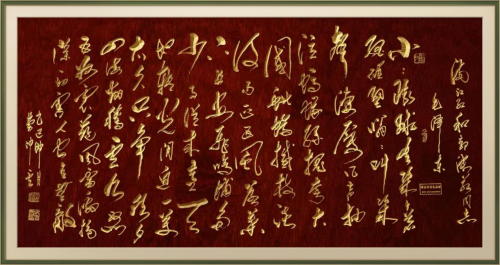 滿江红和郭沫若同志
毛泽东
小小寰球有几个苍
蝇碰壁嗡嗡叫几
声凄厉几声抽
泣蚂蚁缘槐夸大
国蚍蜉撼树谈
何易正西风落叶
下长安飞鸣镝多
少事从来急天
地转光阴迫一万
年太久只争朝夕
四海翻腾云水怒
五洲震荡风雷激扫
除一切害人虫全无敌